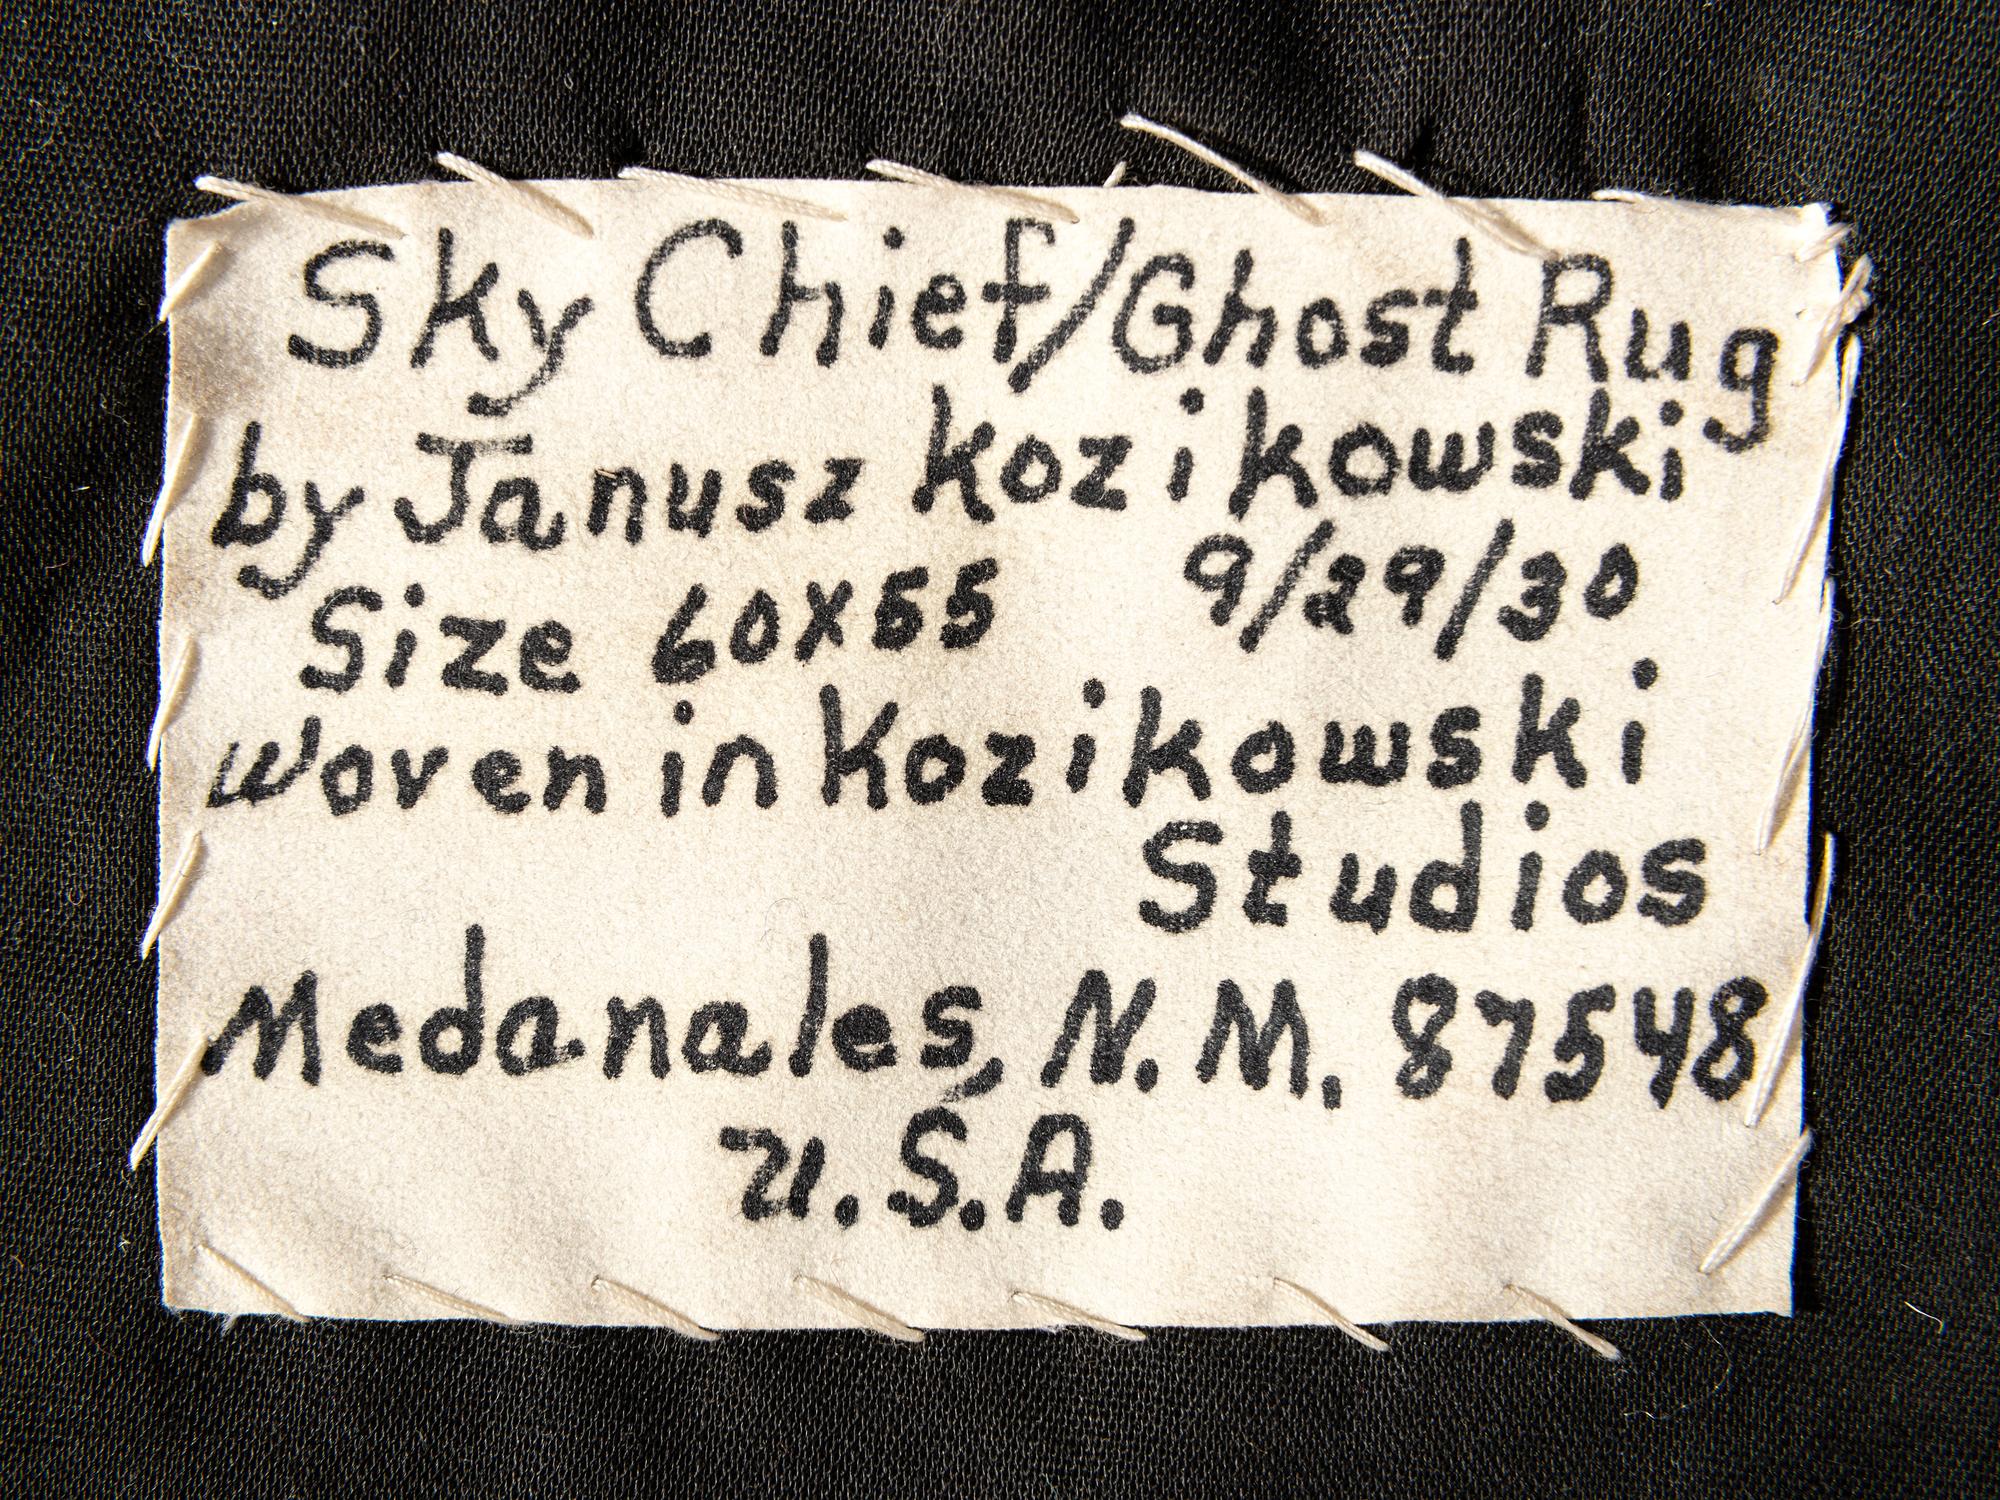 Sky Chief/Ghost Rug
by Janusz Kozikowski
Size 60X55 9/29/30
Woven in Kozikowski
Studios
Medanales, N.M. 87548
U.S.A.